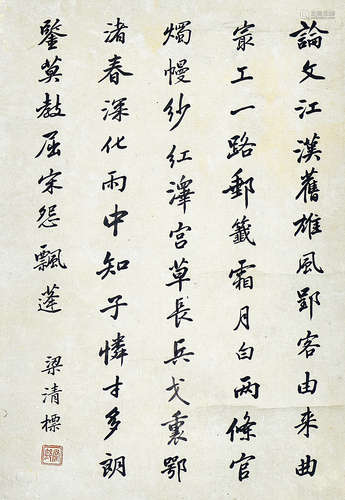 論文江漢舊雄風郢客由来曲
㝡工一路郵籤霜月白兩條官
燭幔紗紅澤宮草長兵戈裏鄂
渚春深化雨中知子憐才多朗
鑒莫教屈宋怨飄蓬
梁清標